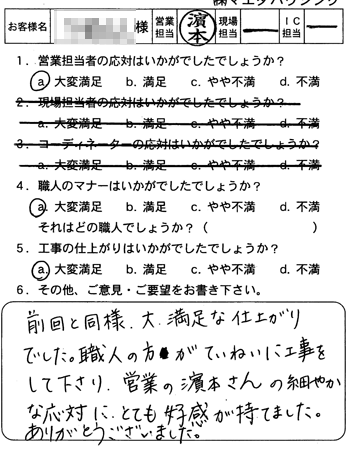 ㈱マエダハウジング
お客様名 様 営業担当 濱本 現場担当 ー IC担当 ー
1．営業担当者の応対はいかがでしたでしょうか？
a. 大変満足 b. 満足 c. やや不満 d. 不満
2．現場担当者の応対はいかがでしたでしょうか？
a. 大変満足 b. 満足 c. やや不満 d. 不満
3．コーディネーターの応対はいかがでしたでしょうか？
a. 大変満足 b. 満足 c. やや不満 d. 不満
4．職人のマナーはいかがでしたでしょうか？
a. 大変満足 b. 満足 c. やや不満 d. 不満
それはどの職人でしょうか？（ ）
5．工事の仕上がりはいかがでしたでしょうか？
a. 大変満足 b. 満足 c. やや不満 d. 不満
6．その他、ご意見・ご要望をお書き下さい。
前回と同様、大満足な仕上がり
でした。職人の方がていねいに工事を
して下さり、営業の濱本さんの細やか
な応対に、とても好感が持てました。
ありがとうございました。